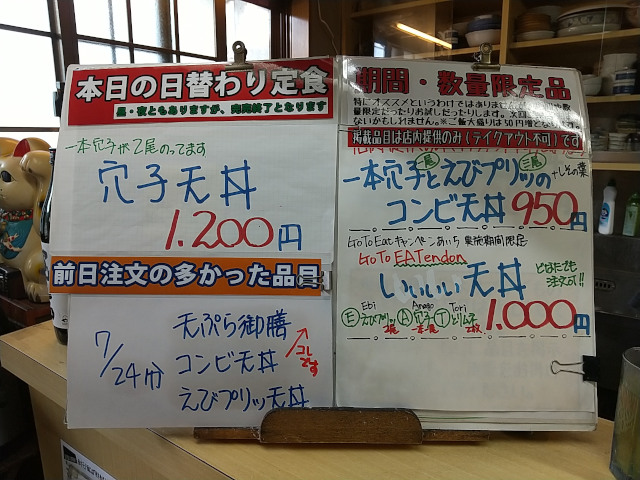 本日の日替わり定食
昼・夜ともありますが、完売終了となります
一本穴子が2尾のってます
穴子天丼
1.200円
前日注文の多かった品目
7/24分
天ぷら御膳
コンビ天丼
えびプリッ天丼
コレです
期間・数量限定品
特にオススメというわけではありません
量限定だったりお試しだったりします。次回
ないかもしれません。※ご飯大盛りは50円増
掲載品目は店内提供のみ(テイクアウト不可)です
一本穴子とえびプリッの
一尾
三尾
+しその葉
コンビ天丼 950円
GoToEatキャンペーンあいち 実施期間限定
GoTo EATendon
いいいい天丼
どなたでも
注文可!!
Ebi Anago Tori
E えびプリッ A 穴子 T とりム子
1.000円